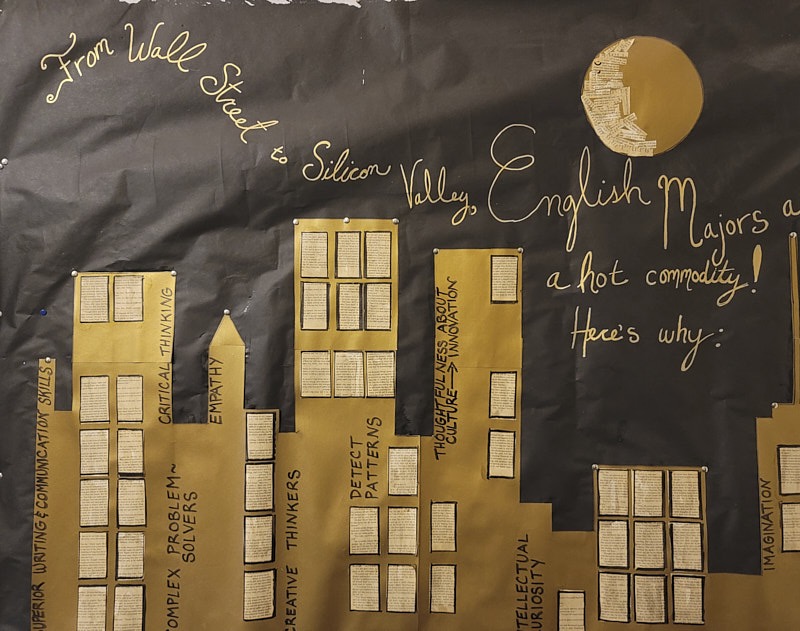 From Wall Street to Silicon Valley, English Majors a
a hot commodity!
Here's why:
SUPERIOR WRITING & COMMUNICATION SKILLS
CRITICAL THINKING
COMPLEX PROBLEM~
SOLVERS
EMPATHY
CREATIVE THINKERS
DETECT
PATTERNS
THOUGHTFULNESS ABOUT
CULTURE → INNOVATION
TELLECTUAL
URIOSITY
IMAGINATION